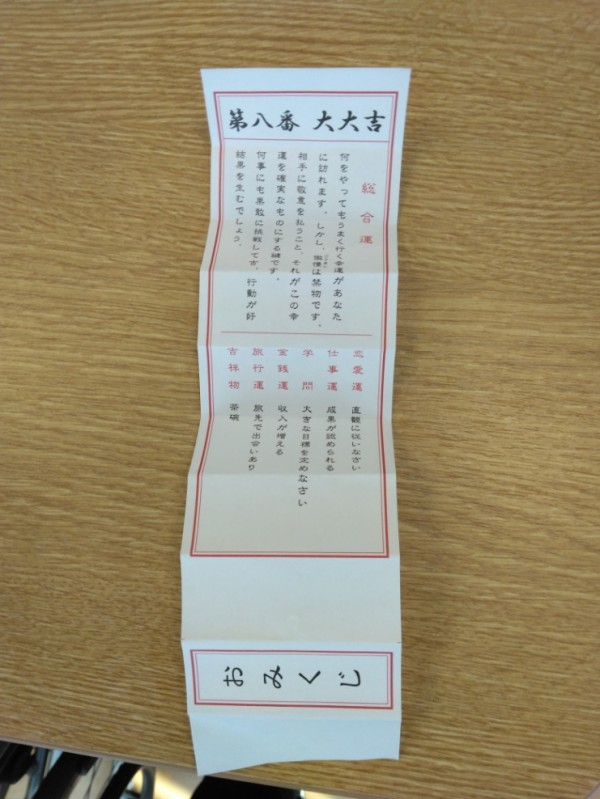 第八番 大大吉
総合運
何をやってもうまく行く幸運があなた
に訪れます。しかし、傲慢は禁物です。
相手に敬意を払うこと、それがこの幸
運を確実なものにする鍵です。
何事にも果敢に挑戦して吉。行動が好
結果を生むでしょう。
恋愛運 直観に従いなさい
仕事運 成果が認められる
学問 大きな目標を定めなさい
金銭運 収入が増える
旅行運 旅先で出会いあり
吉祥物 茶碗
おみくじ